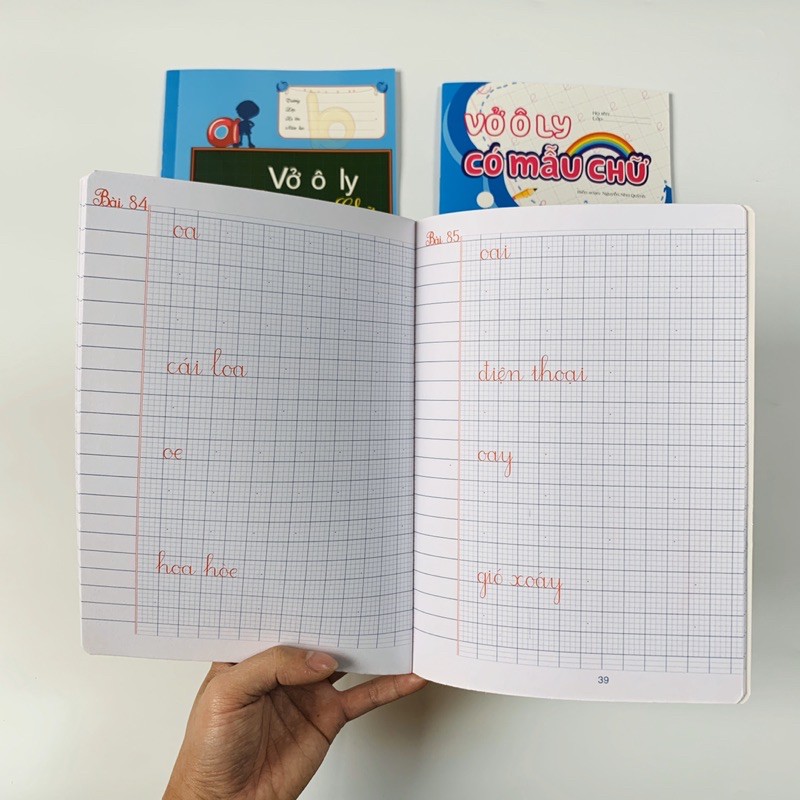 Vở ô ly
VỞ Ô LY
CÓ MẪU CHỮ
Bài 84
oa
cái loa
oe
hoa hòe
Bài 85
oai
điện thoại
oay
gió xoáy
39